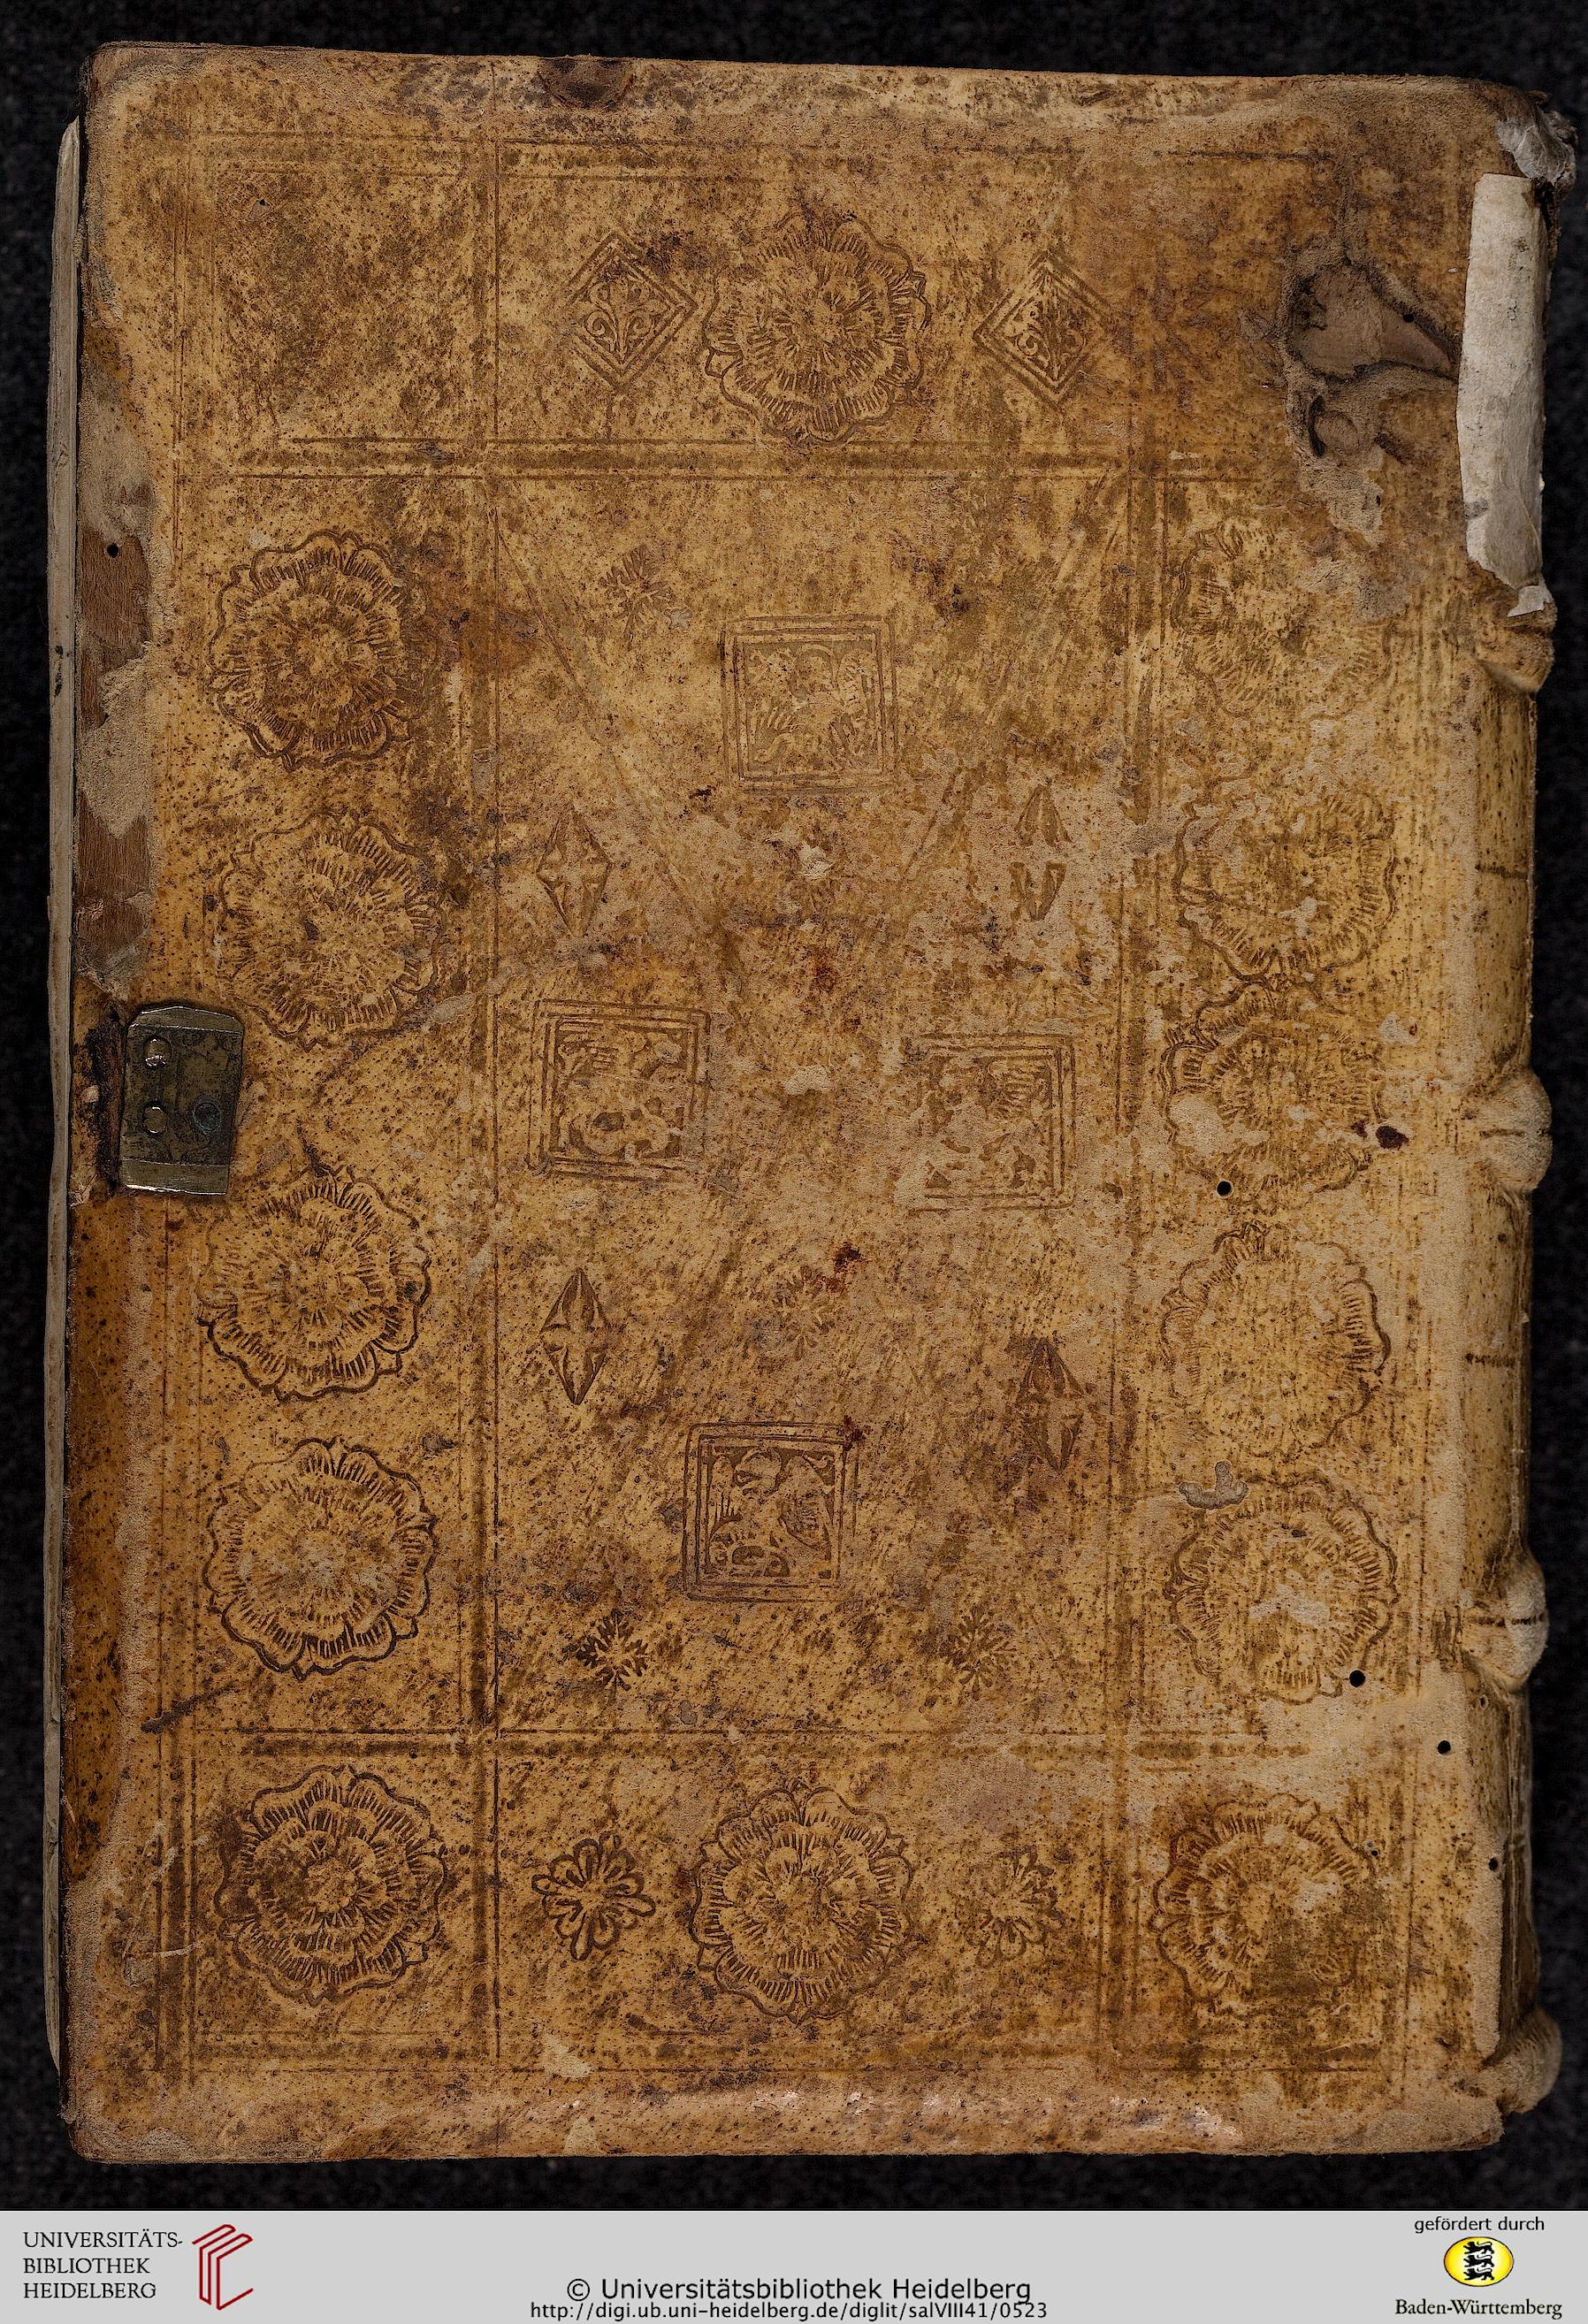 UNIVERSITÄTS-
BIBLIOTHEK
HEIDELBERG
© Universitätsbibliothek Heidelberg
http://digi.ub.uni-heidelberg.de/diglit/salVIII41/0523
gefördert durch
Baden-Württemberg